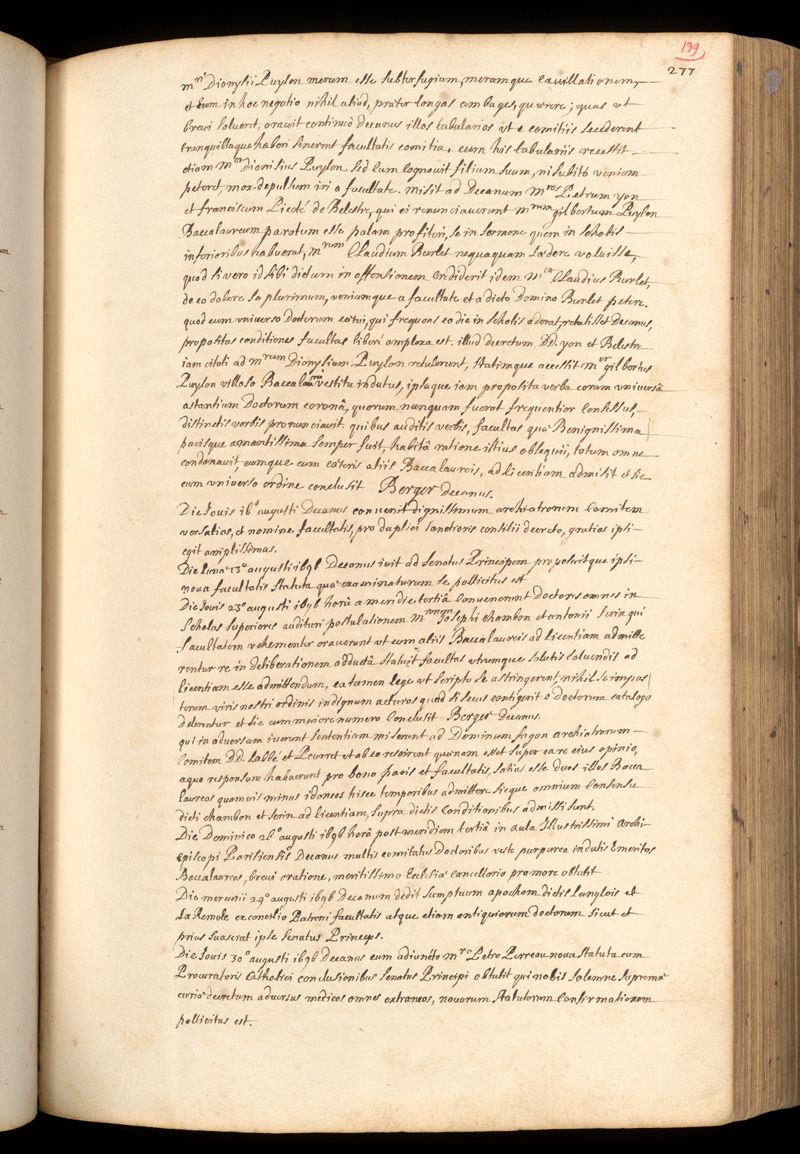 139
277
mri Dionysii Puylon merum esse subterfugium, meramque cavillationem,
et eum in hoc negotio nihil aliud, præter longas ambages, quærere; quas ut
brevi solveret, oravit continuò Decanus illos tabularios ut e comitiis secederent
tranquillaque haberi sinerent facultatis comitia. cum his tabulariis recessit
etiam Mer Dionisius Puylon sed cum cognovit filium suum, ni subitò veniam
peteret, mox depulsum iri a facultate. misit ad Decanum Mros Petrum yon
et franciscum Picoté de Belestre, qui ei renunciaverunt mrum gilbertum Puylon
Baccalaureum paratum esse palam profiteri, se in sermone quem in scholis
inferioribus habuerat, mrum Claudium Burlet nequaquam lædere voluisse,
quod si vero id sibi dictum in offensionem crediderit idem Mer Claudius Burlet,
de eo dolere se plurimum, veniamque a facultate et a dicto Domino Burlet petere.
quod cum universo Doctorum cœtui, qui frequens eo die in scholis aderat, retulisset Decanus,
propositas conditiones facultas liberè amplexa est. illud decretum DD. yon et Belestre
iam citati ad mrum Dionysium Puylon retulerunt, statimque accessit mer gilbertus
Puylon villoso Baccalaurei vestitu indutus, ipsaque iam proposita verba coram universâ
astantium Doctorum coronâ, quorum nunquam fuerat frequentior consessus,
distinctis verbis pronunciavit. quibus auditis verbis, facultas quæ Benignissima
pacisque amantissima semper fuit, habitâ ratione istius obsequii, totum omne
condonavit, eumque cum cæteris aliis Baccalaureis, ad licentiam admisit et sic
cum universo ordine conclusit Berger Decanus.
Die Iovis 16° augusti Decanus convenit dignissimum archiatrorum Comitem
versalias, et nomine facultatis, pro duplici sanctioris consilii decreto, gratias ipsi
egit amplissimas.
Die lunæ 13° augusti 1696 Decanus ivit ad Senatus Principem proposuitque ipsi
nova facultatis statuta quæ examinaturum se pollicitus est
Die Iovis 23° augusti 1696 horâ a meridie tertiâ convenerunt Doctores omnes in
Scholas superiores audituri postulationem Mrorum Iosephi chambon et antonii serin qui
facultatem vehementer oraverunt ut cum aliis Baccalaureis ad licentiam admitte
rentur re in deliberationem adductâ statuit facultas utrumque solutis solvendis ad
licentiam esse admittendum, ea tamen lege ut scripto se astringerent, nihil se impos
torum viris nostri ordinis indignum acturos quod si secus contigerit e Doctorum catalogo
delerentur et sic cum maiore numero conclusit Berger Decanus.
qui in adversam iverunt sententiam miserunt ad Dominum fagon archiatrorum
Comitem DD. labbé et Pourret ut ab eo rescirent quænam esset super ea re eius opinio,
a quo responsum habuerunt pro bono pacis et facultatis, satius esse duos illos Bacca
laureos quamvis minus idoneos hisce temporibus admittere sicque omnium consensu
dicti chambon et serin ad licentiam, supra dictis conditionibus admissi sunt.
Die Dominico 26° augusti 1696 horâ post meridiem tertiâ in aula Illustrissimi Archi-
episcopi Parisiensis Decanus multis comitatus Doctoribus veste purpurea indutis Emeritos
Baccalaureos, brevi oratione, meritissimo Ecclesiæ cancellario pro more obtulit
Die mercurii 29° augusti 1696 Decanum dedit sumptuum apocham dictis Langlois et
La Remole ex consilio Patroni facultatis atque etiam antiquiorum doctorum sicut et
prius suaserat ipse senatus Princeps.
Die Iovis 30° augusti 1696 Decanus cum adiuncto mro Petro Perreau nova statuta cum
Procuratoris Catholici conclusionibus senatus Principi obtulit qui nobis solemne supremæ
curiæ decretum adversus medicos omnes extraneos, novorum statutorum confirmationem
pollicitus est.